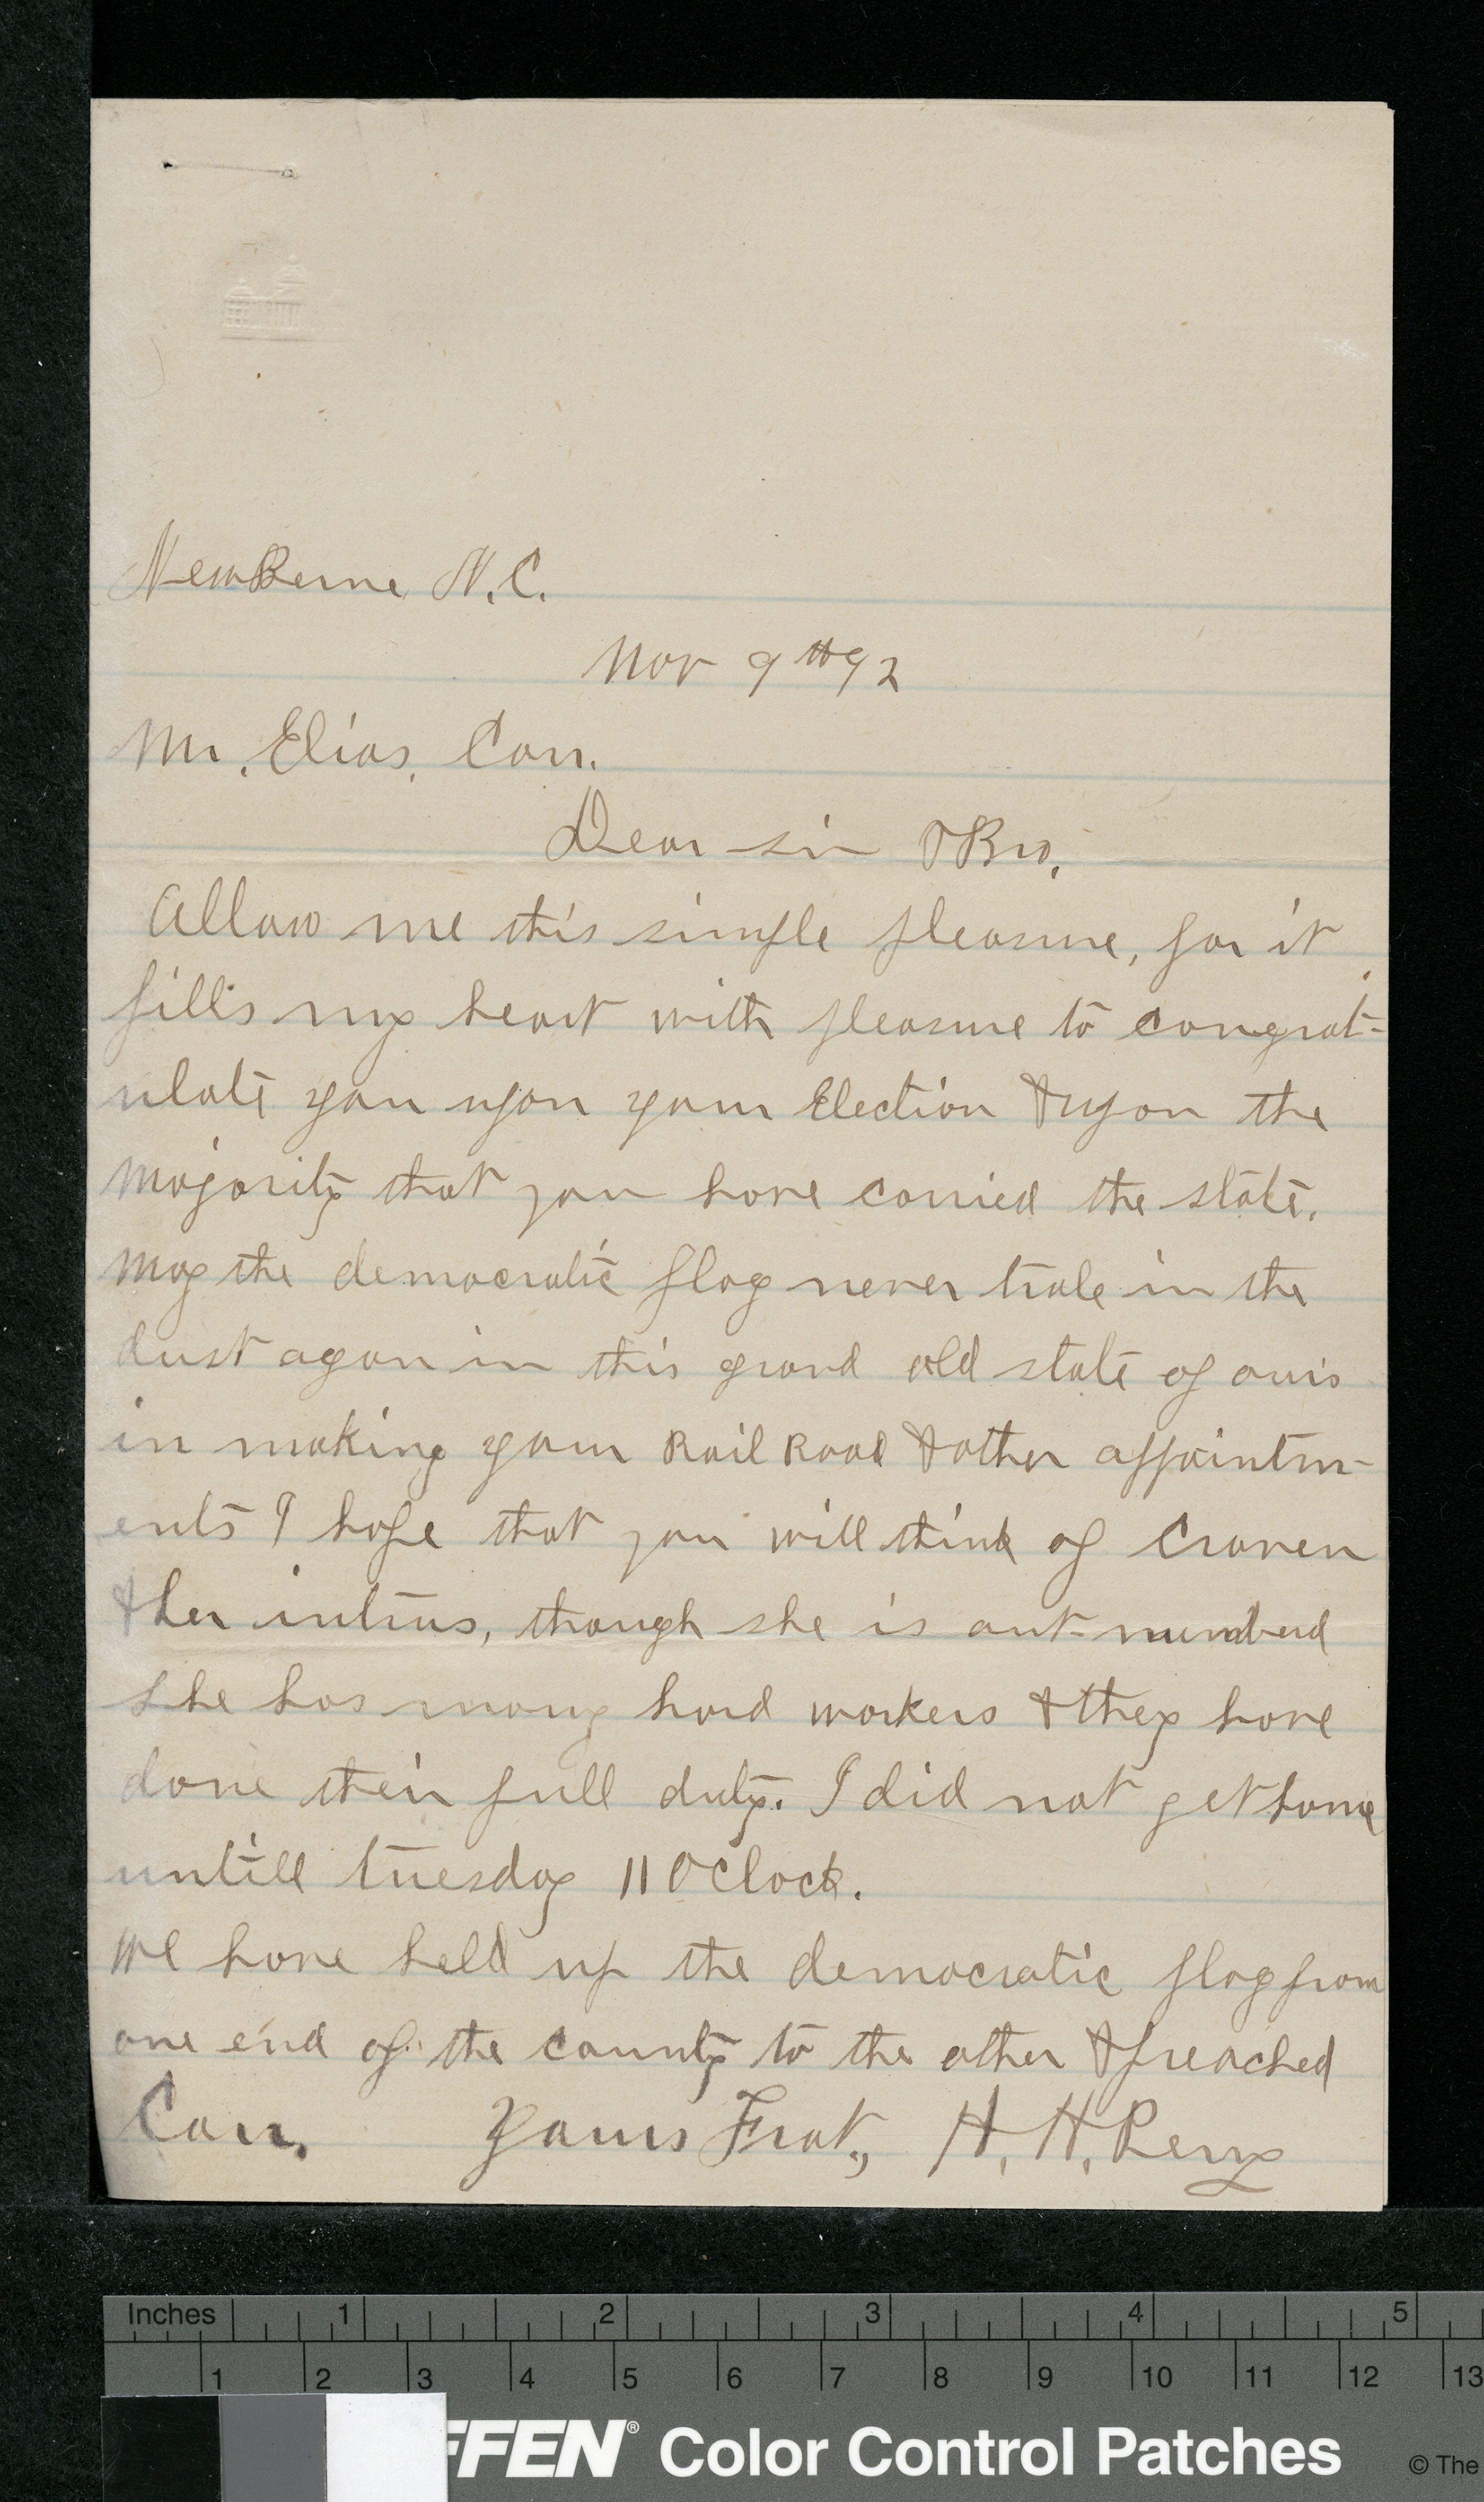 NewBerne, N.C.
Nov 9th 92
Mr. Elias. Carr.
Dear sir & Bro.
Allow me this simple pleasure, for it
fills my heart with pleasure to congrat-
ulate you upon your Election & upon the
Majority that you have carried the state.
May the democratic flag never trale in the
dust agan in this grand old state of ours
in making your Rail Road & other appointm-
ents I hope that you will think of Craven
& her intrus, though she is out-numberd
she has many hard workers & they have
done their full duty. I did not get home
untill tuesday 11 OClock.
We have held up the democratic flag from
one end of the county to the other & preached
Carr. Yours Frat., H. H. Perry
Inches 1 2 3 4 5
1 2 3 4 5 6 7 8 9 10 11 12 13
FFEN® Color Control Patches © The